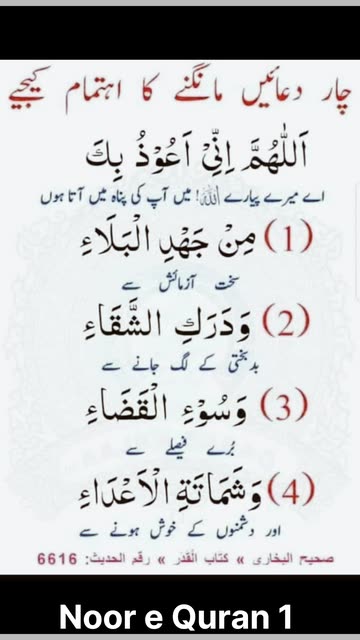 چار دعائیں مانگنے کا اہتمام کیجیے
اَللّٰهُمَّ اِنِّیْ اَعُوْذُ بِكَ
اے میرے پیارے اللہ! میں آپ کی پناہ میں آتا ہوں
(1) مِنْ جَهْدِ الْبَلَاءِ
سخت آزمائش سے
(2) وَدَرَكِ الشَّقَاءِ
بدبختی کے لگ جانے سے
(3) وَسُوْءِ الْقَضَاءِ
بُرے فیصلے سے
(4) وَشَمَاتَةِ الْاَعْدَاءِ
اور دشمنوں کے خوش ہونے سے
صحیح البخاری » کتاب القدر » رقم الحدیث: 6616
Noor e Quran 1